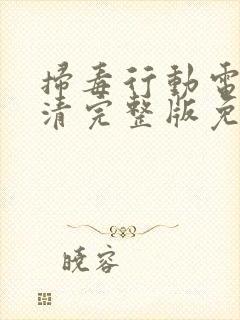 掃毒行動電
清完整版免
曉容